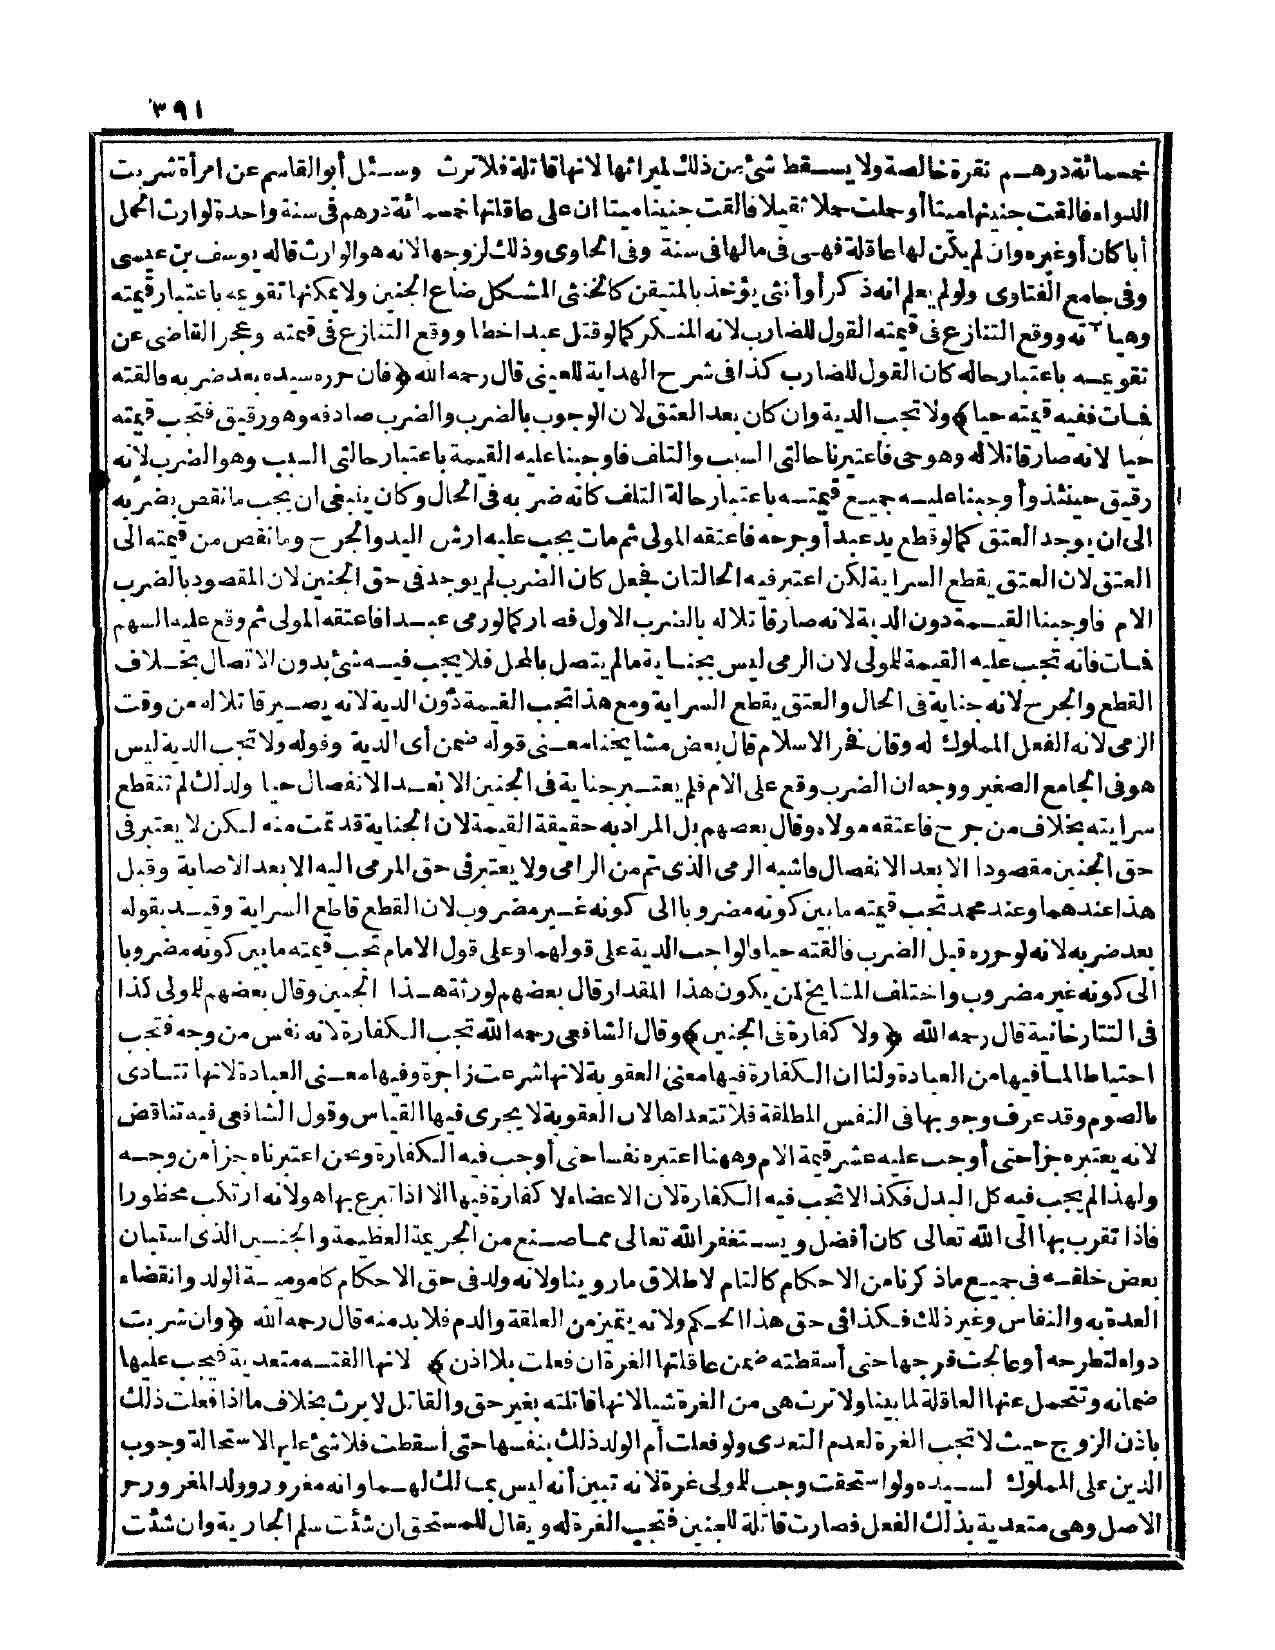 ٣٩١
خمسمائة درهم نقرة خالصة ولا يسقط شئ من ذلك لميراثها لانها قاتلة فلا ترث وسئل أبو القاسم عن امرأة شربت
الدواء فالقت جنينها ميتا أو حملت حملا ثقيلا فالقت جنينا ميتا ان على عاقلتها خمسمائة درهم فى سنة واحدة لوارث الحمل
أبا كان أو غيره وان لم يكن لها عاقلة فهى فى مالها فى سنة وفى الحاوى وذلك لزوجها لانه هو الوارث قاله يوسف بن عيسى
وفى جامع الفتاوى ولو لم يعلم انه ذكر أو أنثى يؤخذ بالمتيقن كالخنثى المشكل ضاع الجنين ولا يمكنها تقويمه باعتبار قيمته
وهيآته ووقع التنازع فى قيمته القول للضارب لانه المنكر كما لو قتل عبد اخطا ووقع التنازع فى قيمته وعجز القاضى عن
تقويمه باعتبار حاله كان القول للضارب كذا فى شرح الهداية للعينى قال رحمه الله ﴿فان حرره سيده بعد ضربه فالقته
فمات ففيه قيمته حيا﴾ ولا تجب الدية وان كان بعد العتق لان الوجوب بالضرب والضرب صادفه وهو رقيق فتجب قيمته
حيا لانه صار قاتلا له وهو حى فاعتبرنا حالتى السبب والتلف فاوجبنا عليه القيمة باعتبار حالتى السبب وهو الضرب لانه
رقيق حينئذ وأوجبنا عليه جميع قيمته باعتبار حالة التلف كانه ضربه فى الحال وكان ينبغى ان يجب ما نقص بضربه
الى ان يوجد العتق كما لو قطع يد عبد أو جرحه فاعتقه المولى ثم مات يجب عليه ارش اليد والجرح وما نقص من قيمته الى
العتق لان العتق يقطع السراية لكن اعتبر فيه الحالتان فجعل كان الضرب لم يوجد فى حق الجنين لان المقصود بالضرب
الام فاوجبنا القيمة دون الدية لانه صار قاتلا له بالضرب الاول فصار كما لو رمى عبدا فاعتقه المولى ثم وقع عليه السهم
فمات فانه تجب عليه القيمة للمولى لان الرمى ليس بجناية ما لم يتصل بالمحل فلا يجب فيه شئ بدون الاتصال بخلاف
القطع والجرح لانه جناية فى الحال والعتق يقطع السراية ومع هذا تجب القيمة دون الدية لانه يصير قاتلا له من وقت
الرمى لانه الفعل المملوك له وقال فخر الاسلام قال بعض مشايخنا معنى قوله ضمن أى الدية وقوله ولا تجب الدية ليس
هو فى الجامع الصغير ووجه ان الضرب وقع على الام فلم يعتبر جناية فى الجنين الا بعد الانفصال حيا ولذلك لم تنقطع
سرايته بخلاف من جرح فاعتقه مولاه وقال بعضهم بل المراد به حقيقة القيمة لان الجناية قد تمت منه لكن لا يعتبر فى
حق الجنين مقصودا الا بعد الانفصال فاشبه الرمى الذى تم من الرامى ولا يعتبر فى حق المرمى اليه الا بعد الاصابة وقيل
هذا عندهما وعند محمد تجب قيمته ما بين كونه مضروبا الى كونه غير مضروب لان القطع قاطع السراية وقيد بقوله
بعد ضربه لانه لو حرره قبل الضرب فالقته حيا فالواجب الدية على قولهما وعلى قول الامام تجب قيمته ما بين كونه مضروبا
الى كونه غير مضروب واختلف المشايخ لمن يكون هذا المقدار قال بعضهم لورثة هذا الجنين وقال بعضهم للمولى كذا
فى التتارخانية قال رحمه الله ﴿ولا كفارة فى الجنين﴾ وقال الشافعى رحمه الله تجب الكفارة لانه نفس من وجه فتجب
احتياطا لما فيها من العبادة ولنا ان الكفارة فيها معنى العقوبة لانها شرعت زاجرة وفيها معنى العبادة لانها تتادى
بالصوم وقد عرف وجوبها فى النفس المطلقة فلا تتعداها لان العقوبة لا يجرى فيها القياس وقول الشافعى فيه تناقض
لانه يعتبره جزأ حتى أوجب عليه عشر قيمة الام وههنا اعتبره نفسا حتى أوجب فيه الكفارة ونحن اعتبرناه جزأ من وجه
ولهذا لم يجب فيه كل البدل فكذا لا تجب فيه الكفارة لان الاعضاء لا كفارة فيها الا اذا تبرع بها هو لانه ارتكب محظورا
فاذا تقرب بها الى الله تعالى كان أفضل ويستغفر الله تعالى مما صنع من الجريمة العظيمة والجنين الذى استبان
بعض خلقه فى جميع ما ذكرنا من الاحكام كالتام لاطلاق ما روينا ولانه ولد فى حق الاحكام كامومية الولد وانقضاء
العدة به والنفاس وغير ذلك فكذا فى حق هذا الحكم ولانه يتميز من العلقة والدم فلا بد منه قال رحمه الله ﴿وان شربت
دواء لتطرحه أو عالجت فرجها حتى أسقطته ضمن عاقلتها الغرة ان فعلت بلا اذن﴾ لانها القته متعدية فيجب عليها
ضمانه وتتحمل عنها العاقلة لما بينا ولا ترث هى من الغرة شيا لانها قاتلته بغير حق والقاتل لا يرث بخلاف ما اذا فعلت ذلك
باذن الزوج حيث لا تجب الغرة لعدم التعدى ولو فعلت أم الولد ذلك بنفسها حتى أسقطت فلا شئ عليها لاستحالة وجوب
الدين على المملوك لسيده ولو استحقت وجب للمولى غرة لانه تبين أنه ليس بمالك لها وانه مغرور وولد المغرور حر
الاصل وهى متعدية بذلك الفعل فصارت قاتلة للجنين فتجب الغرة له ويقال للمستحق ان شئت سلم الجارية وان شئت